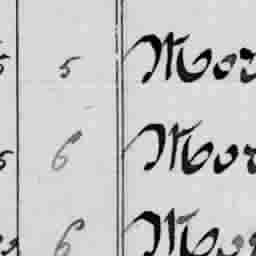 5 5 Mor
5 6 Mor
6 Mor